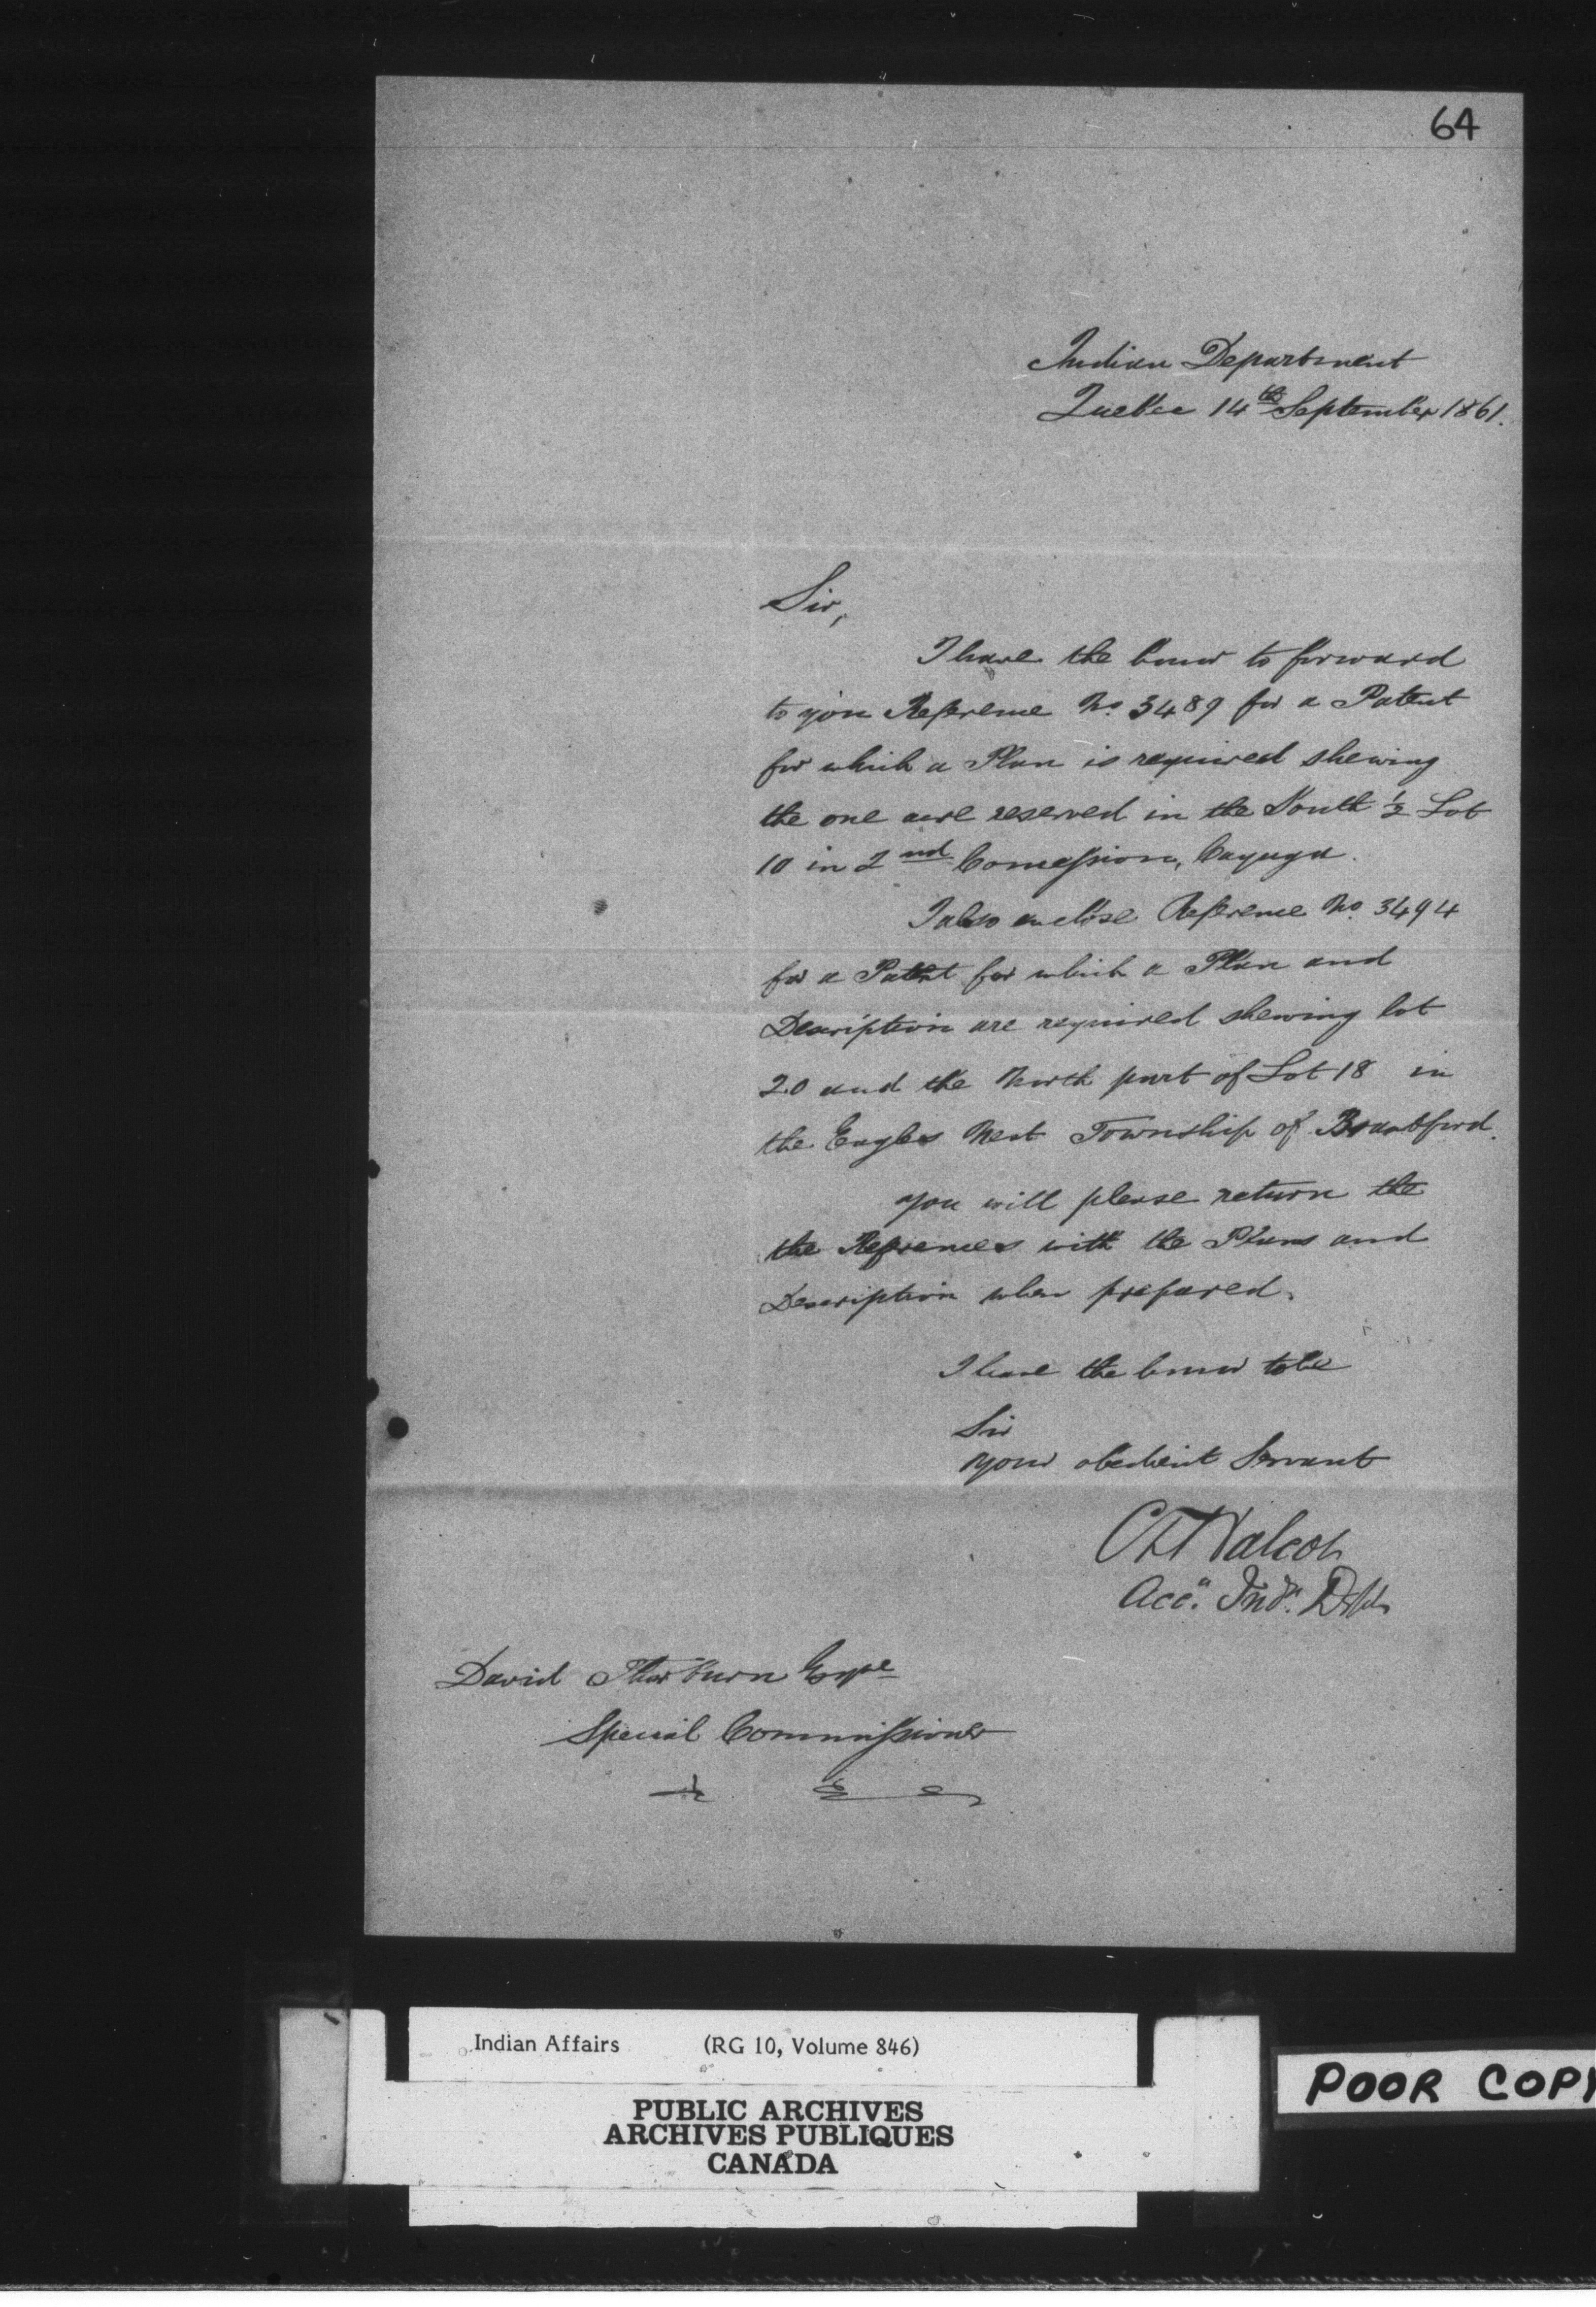 64
Indian Department
Quebec 14th September 1861.
Sir,
I have the honor to forward
to you Reference No. 3489 for a Patent
for which a Plan is required shewing
the one acre reserved in the South 1/2 Lot
10 in 2nd Concession, Cayuga.
I also enclose Reference No. 3494
for a Patent for which a Plan and
Description are required shewing lot
20 and the North part of Lot 18 in
the Eagles Nest Township of Brantford.
you will please return the
the References with the Plans and
Description when prepared.
I have the honor to be
Sir
Your obedient Servant
C T Walcot
Acct. Ind. Dept
David Thorburn Esqre
Special Commissioner
Indian Affairs (RG 10, Volume 846)
PUBLIC ARCHIVES
ARCHIVES PUBLIQUES
CANADA
POOR COPY